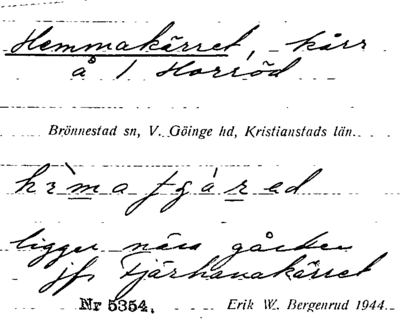 Hemmakärret, kärr
å 1 Horröd
Brönnestad sn, V. Göinge hd, Kristianstads län.
ligger nära gården
jfr Tjärhanakärret
Nr 5354. Erik W. Bergenrud 1944